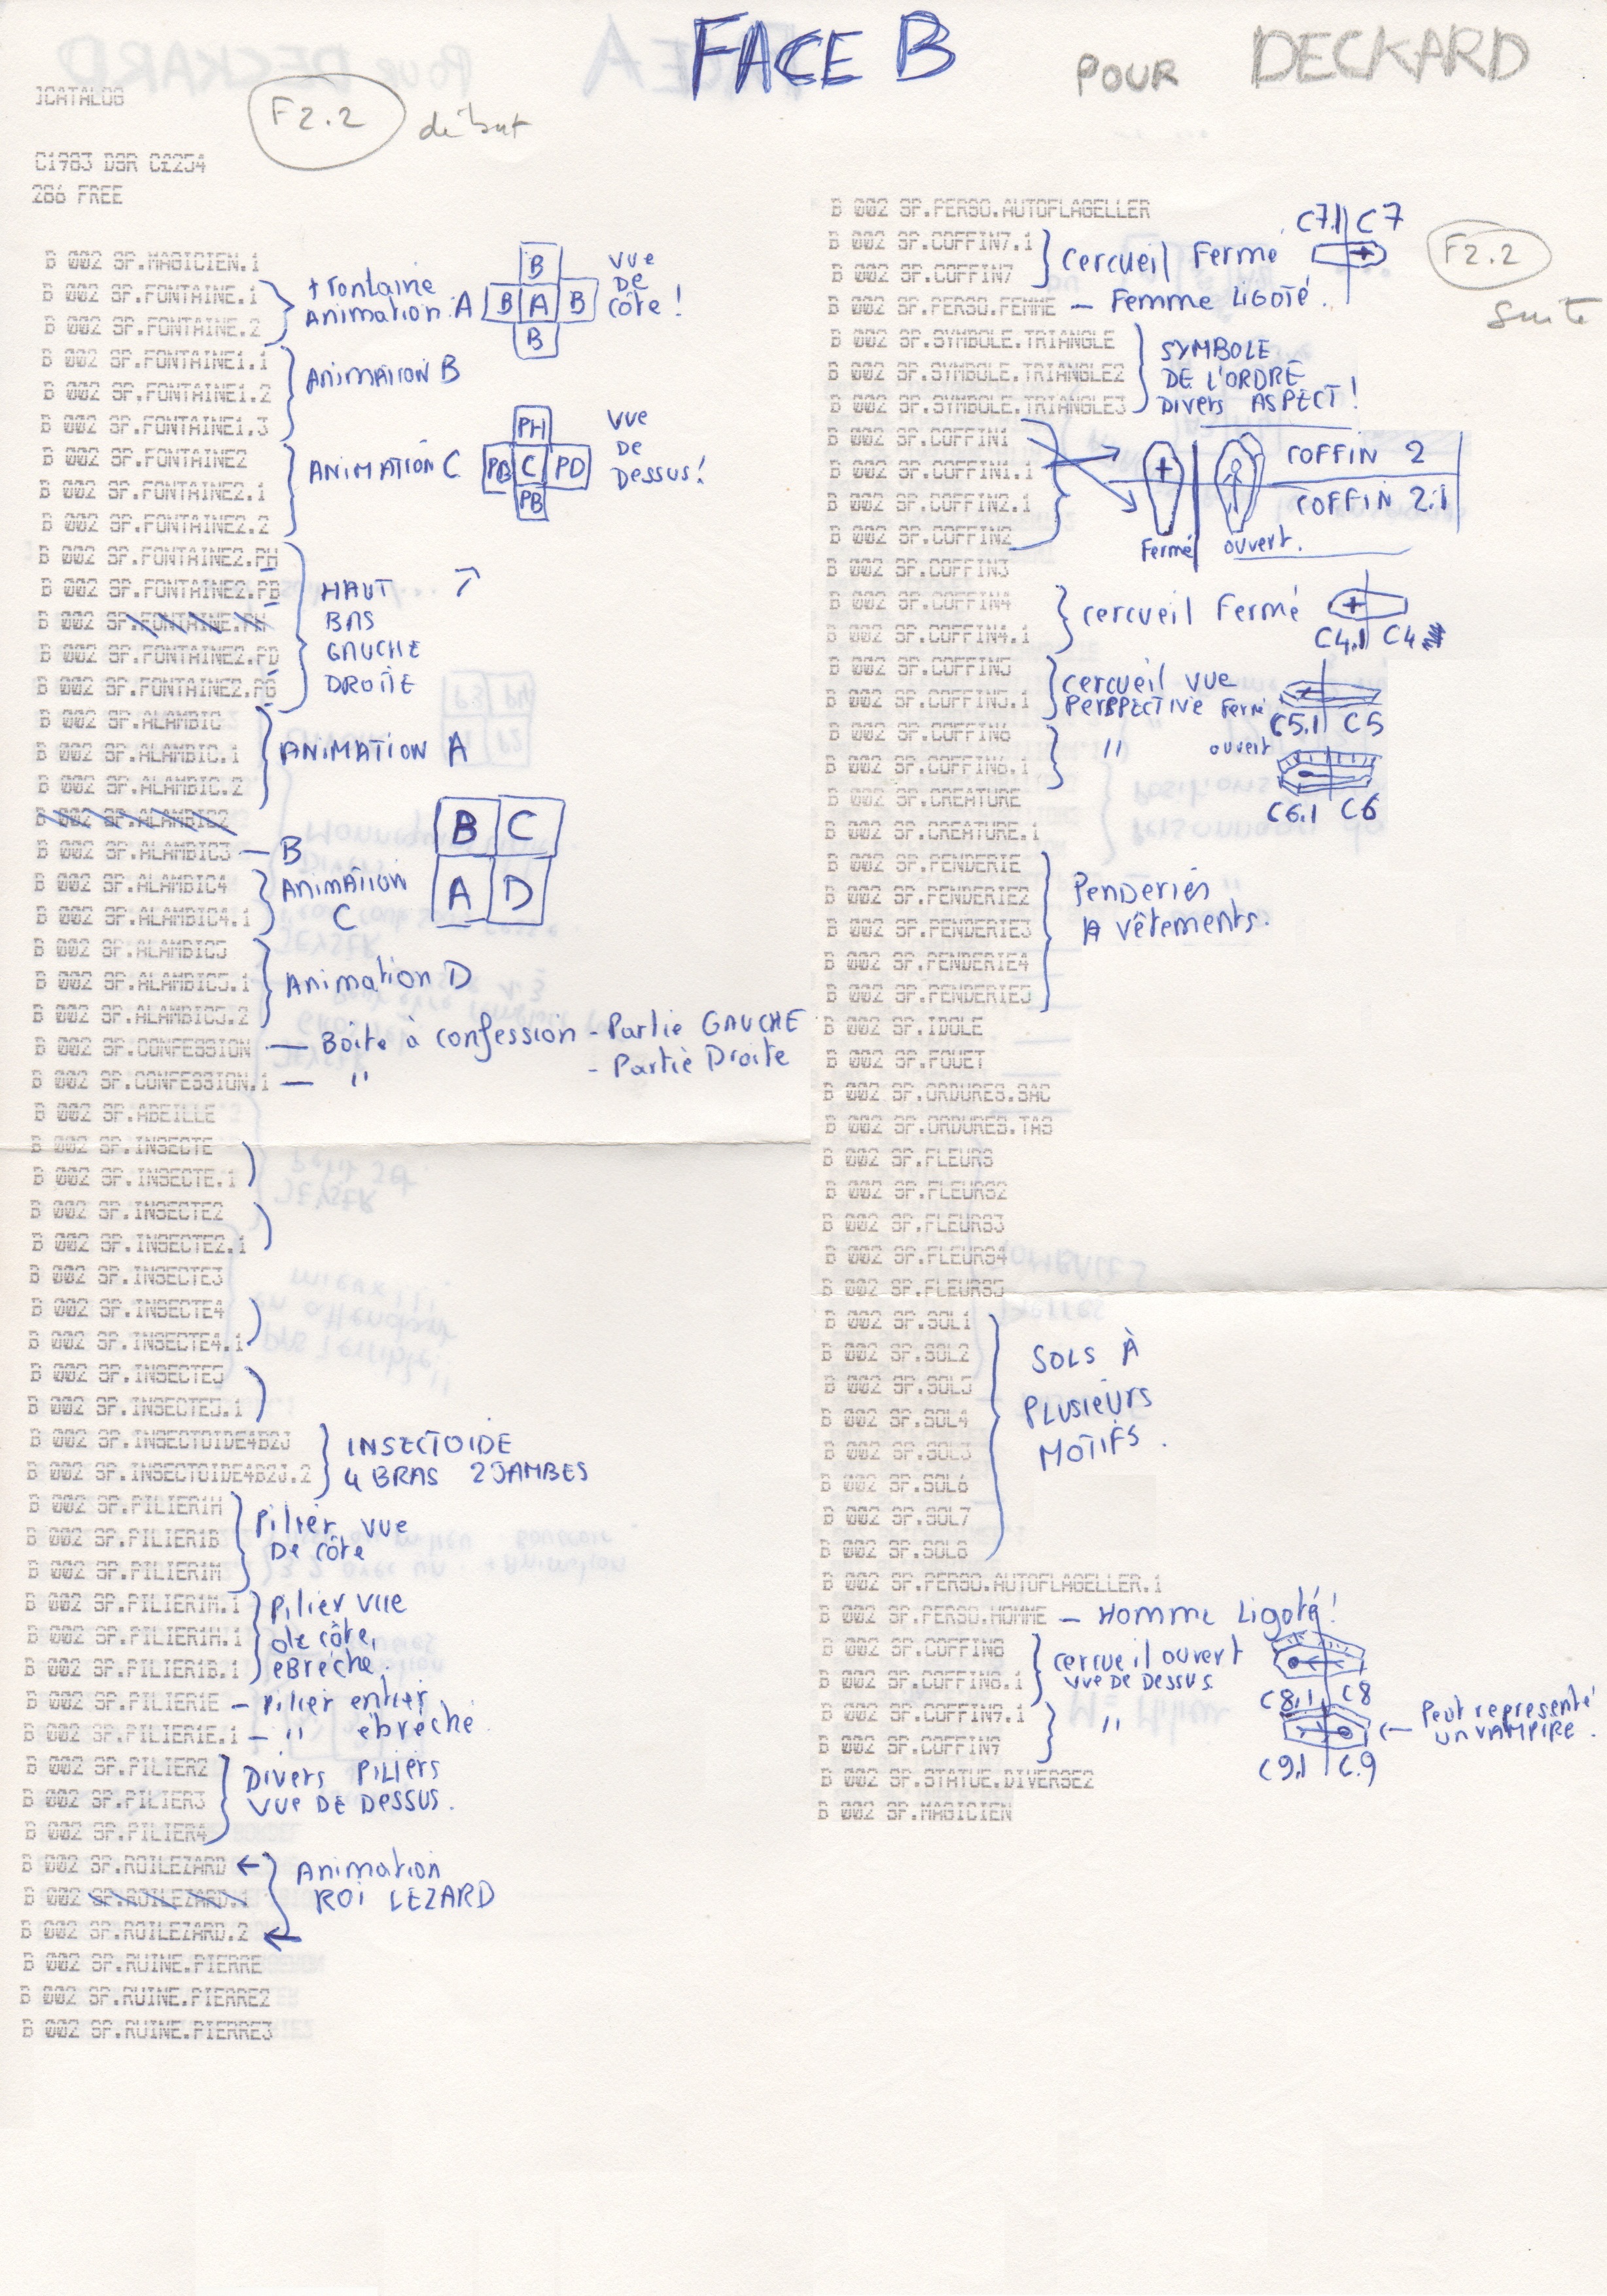 FACE B
POUR DECKARD
]CATALOG
F2.2 début
C1983 DSR C#254
286 FREE
B 002 SP.MAGICIEN.1
B 002 SP.FONTAINE.1
B 002 SP.FONTAINE.2
+ Fontaine
Animation A
B
B A B
B
VUE
DE
Côté !
B 002 SP.FONTAINE1.1
B 002 SP.FONTAINE1.2
B 002 SP.FONTAINE1.3
ANIMATION B
B 002 SP.FONTAINE2
B 002 SP.FONTAINE2.1
B 002 SP.FONTAINE2.2
ANIMATION C
PH
PB C PD
PB
VUE
DE
DESSUS !
B 002 SP.FONTAINE2.PH
B 002 SP.FONTAINE2.PB
B 002 SP.FONTAINE.PH
B 002 SP.FONTAINE2.PD
B 002 SP.FONTAINE2.PG
HAUT
BAS
GAUCHE
DROITE
B 002 SP.ALAMBIC
B 002 SP.ALAMBIC.1
B 002 SP.ALAMBIC.2
ANIMATION A
B 002 SP.ALAMBIC2
B 002 SP.ALAMBIC3 — B
B 002 SP.ALAMBIC4
B 002 SP.ALAMBIC4.1
ANIMATION
C
B C
A D
B 002 SP.ALAMBIC5
B 002 SP.ALAMBIC5.1
B 002 SP.ALAMBIC5.2
Animation D
B 002 SP.CONFESSION — Boîte à confession - Partie GAUCHE
B 002 SP.CONFESSION.1 — " - Partie Droite
B 002 SP.ABEILLE
B 002 SP.INSECTE
B 002 SP.INSECTE.1
B 002 SP.INSECTE2
B 002 SP.INSECTE2.1
B 002 SP.INSECTE3
B 002 SP.INSECTE4
B 002 SP.INSECTE4.1
B 002 SP.INSECTE5
B 002 SP.INSECTE5.1
B 002 SP.INSECTOIDE4B2J
B 002 SP.INSECTOIDE4B2J.2
INSECTOIDE
4 BRAS 2 JAMBES
B 002 SP.PILIER1H
B 002 SP.PILIER1B
B 002 SP.PILIER1M
Pilier vue
De côté
B 002 SP.PILIER1M.1
B 002 SP.PILIER1H.1
B 002 SP.PILIER1B.1
Pilier vue
de côté,
ébréché.
B 002 SP.PILIER1E — Pilier entier
B 002 SP.PILIER1E.1 — " ébréché.
B 002 SP.PILIER2
B 002 SP.PILIER3
B 002 SP.PILIER4
Divers PILIERS
VUE DE DESSUS.
B 002 SP.ROILEZARD ←
B 002 SP.ROILEZARD.1
B 002 SP.ROILEZARD.2 ←
Animation
ROI LEZARD
B 002 SP.RUINE.PIERRE
B 002 SP.RUINE.PIERRE2
B 002 SP.RUINE.PIERRE3
F2.2
Suite
B 002 SP.PERSO.AUTOFLAGELLER
B 002 SP.COFFIN7.1
B 002 SP.COFFIN7
cercueil Fermé
C7.1 C7
B 002 SP.PERSO.FEMME — Femme LIGOTÉ.
B 002 SP.SYMBOLE.TRIANGLE
B 002 SP.SYMBOLE.TRIANGLE2
B 002 SP.SYMBOLE.TRIANGLE3
SYMBOLE
DE L'ORDRE
Divers ASPECT !
B 002 SP.COFFIN1
B 002 SP.COFFIN1.1
B 002 SP.COFFIN2.1
B 002 SP.COFFIN2
COFFIN 2
COFFIN 2.1
Fermé ouvert.
B 002 SP.COFFIN3
B 002 SP.COFFIN4
B 002 SP.COFFIN4.1
cercueil Fermé
C4.1 C4
B 002 SP.COFFIN5
B 002 SP.COFFIN5.1
cercueil vue
PERSPECTIVE Fermé
C5.1 C5
B 002 SP.COFFIN6
B 002 SP.COFFIN6.1
" ouvert
C6.1 C6
B 002 SP.CREATURE
B 002 SP.CREATURE.1
B 002 SP.PENDERIE
B 002 SP.PENDERIE2
B 002 SP.PENDERIE3
B 002 SP.PENDERIE4
B 002 SP.PENDERIE5
Penderies
A vêtements.
B 002 SP.IDOLE
B 002 SP.FOUET
B 002 SP.ORDURES.SAC
B 002 SP.ORDURES.TAS
B 002 SP.FLEURS
B 002 SP.FLEURS2
B 002 SP.FLEURS3
B 002 SP.FLEURS4
B 002 SP.FLEURS5
B 002 SP.SOL1
B 002 SP.SOL2
B 002 SP.SOL5
B 002 SP.SOL4
B 002 SP.SOL3
B 002 SP.SOL6
B 002 SP.SOL7
B 002 SP.SOL8
SOLS À
PLUSIEURS
MOTIFS.
B 002 SP.PERSO.AUTOFLAGELLER.1
B 002 SP.PERSO.HOMME — Homme Ligoté !
B 002 SP.COFFIN8
B 002 SP.COFFIN8.1
cercueil ouvert
vue de Dessus
C8.1 C8
B 002 SP.COFFIN9.1
B 002 SP.COFFIN9
"
C9.1 C.9
← Peut représenté
un VAMPIRE.
B 002 SP.STATUE.DIVERSE2
B 002 SP.MAGICIEN